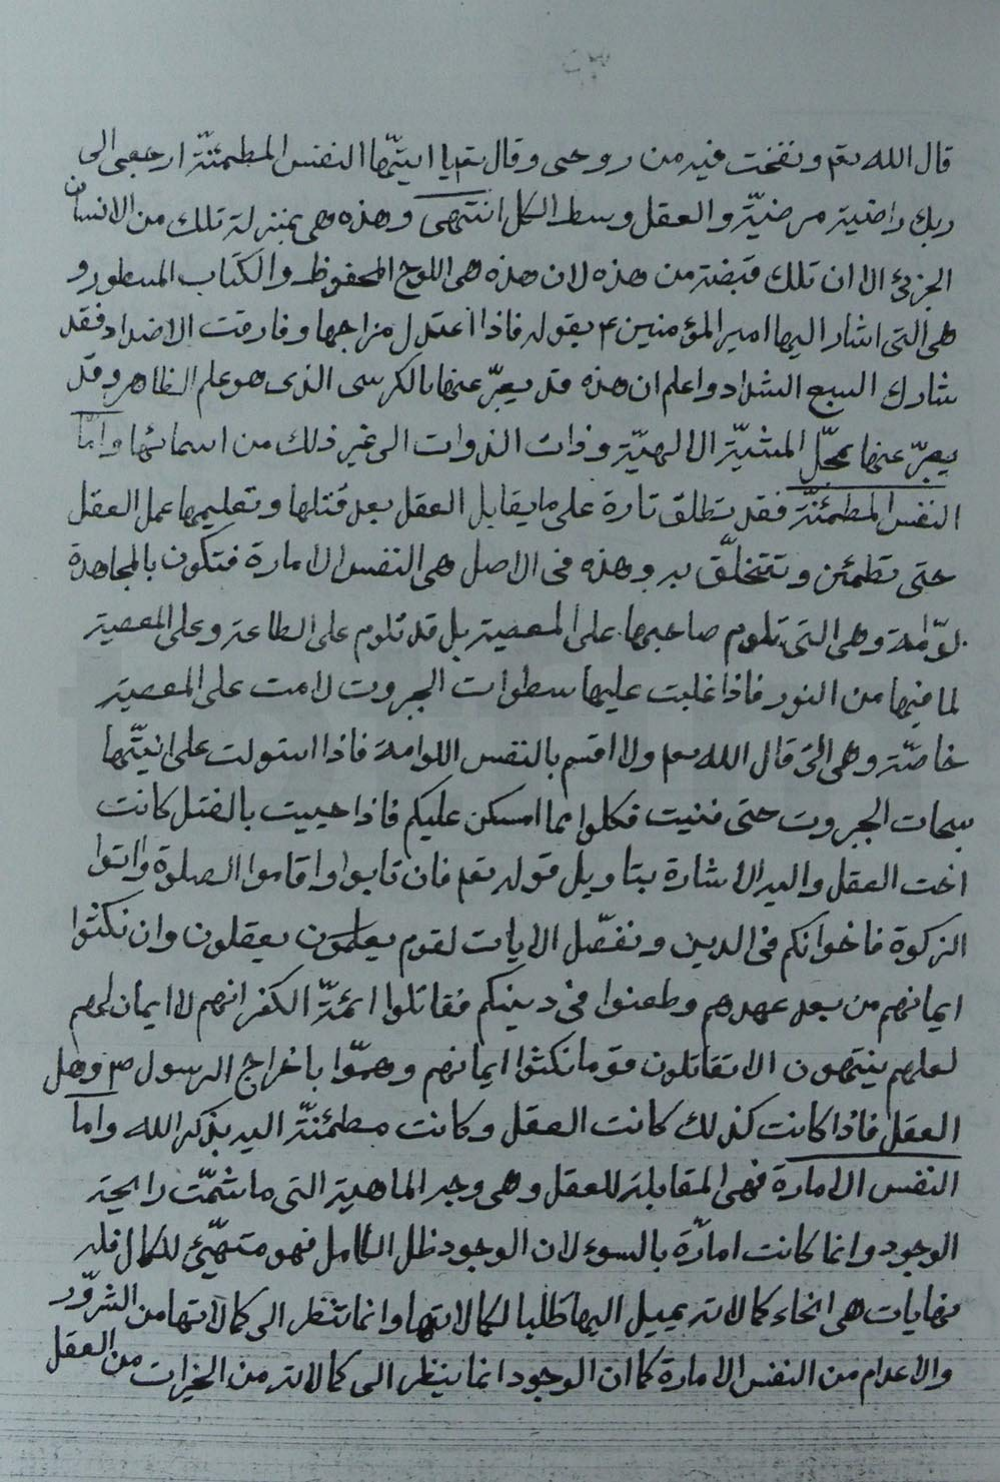 قال الله تعم ونفخت فيه من روحى وقال تعم يا ايتها النفس المطمئنّة ارجعى الى
ربك راضية مرضيّة والعقل وسط الكل انتهى وهذه هى بمنزلة تلك من الانسان
الجزئ الا ان تلك قبضة من هذه لان هذه هى اللوح المحفوظ والكتاب المسطور و
هى التى اشار اليها امير المؤمنين ع بقوله فاذا اعتدل مزاجها وفارقت الاضداد فقد
شارك السبع الشداد واعلم ان هذه قد يعبّر عنها بالكرسى الذى هو علم الظاهر وقد
يعبّر عنها بمحلّ المشيّة الالهيّة وذات الذوات الى غير ذلك من اسمائها وامّا
النفس المطمئنّة فقد تطلق تارة على ما يقابل العقل بعد قتلها وتعليمها عمل العقل
حتى تطمئن وتتخلّق به وهذه فى الاصل هى النفس الامارة فتكون بالمجاهدة
لوّامة وهى التى تلوم صاحبها على المعصية بل قد تلوم على الطاعة وعلى المعصية
لما فيها من النور فاذا غلبت عليها سطوات الجبروت لامت على المعصية
خاصّة وهى الّتى قال الله تعم ولا اقسم بالنفس اللوامة فاذا استولت على انيّتها
سبحات الجبروت حتى فنيت فكلوا مما امسكن عليكم فاذا حييت بالقتل كانت
اخت العقل واليه الاشارة بتاويل قوله تعم فان تابوا واقاموا الصلوة واتوا
الزكوة فاخوانكم فى الدين ونفصّل الايات لقوم يعلمون يعقلون وان نكثوا
ايمانهم من بعد عهدهم وطعنوا فى دينكم فقاتلوا ائمّة الكفر انهم لا ايمان لهم
لعلهم ينتهون الا تقاتلون قوما نكثوا ايمانهم وهمّوا باخراج الرسول ص وهل
العقل فاذا كانت كذلك كانت العقل وكانت مطمئنّة اليه بذكر الله واما
النفس الامارة فهى المقابلة للعقل وهى وجه الماهية التى ما شمّت رايحة
الوجود وانما كانت امارّة بالسوء لان الوجود ظل الكامل فهو متهيّئ للكمال فله
نهايات هى انحاء كمالاته يميل اليها طلبا لكمالاتها وانما تنظر الى كمالاتها من الشرّور
والاعدام من النفس الامارة كما ان الوجود انما ينظر الى كمالاته من الخيرات من العقل